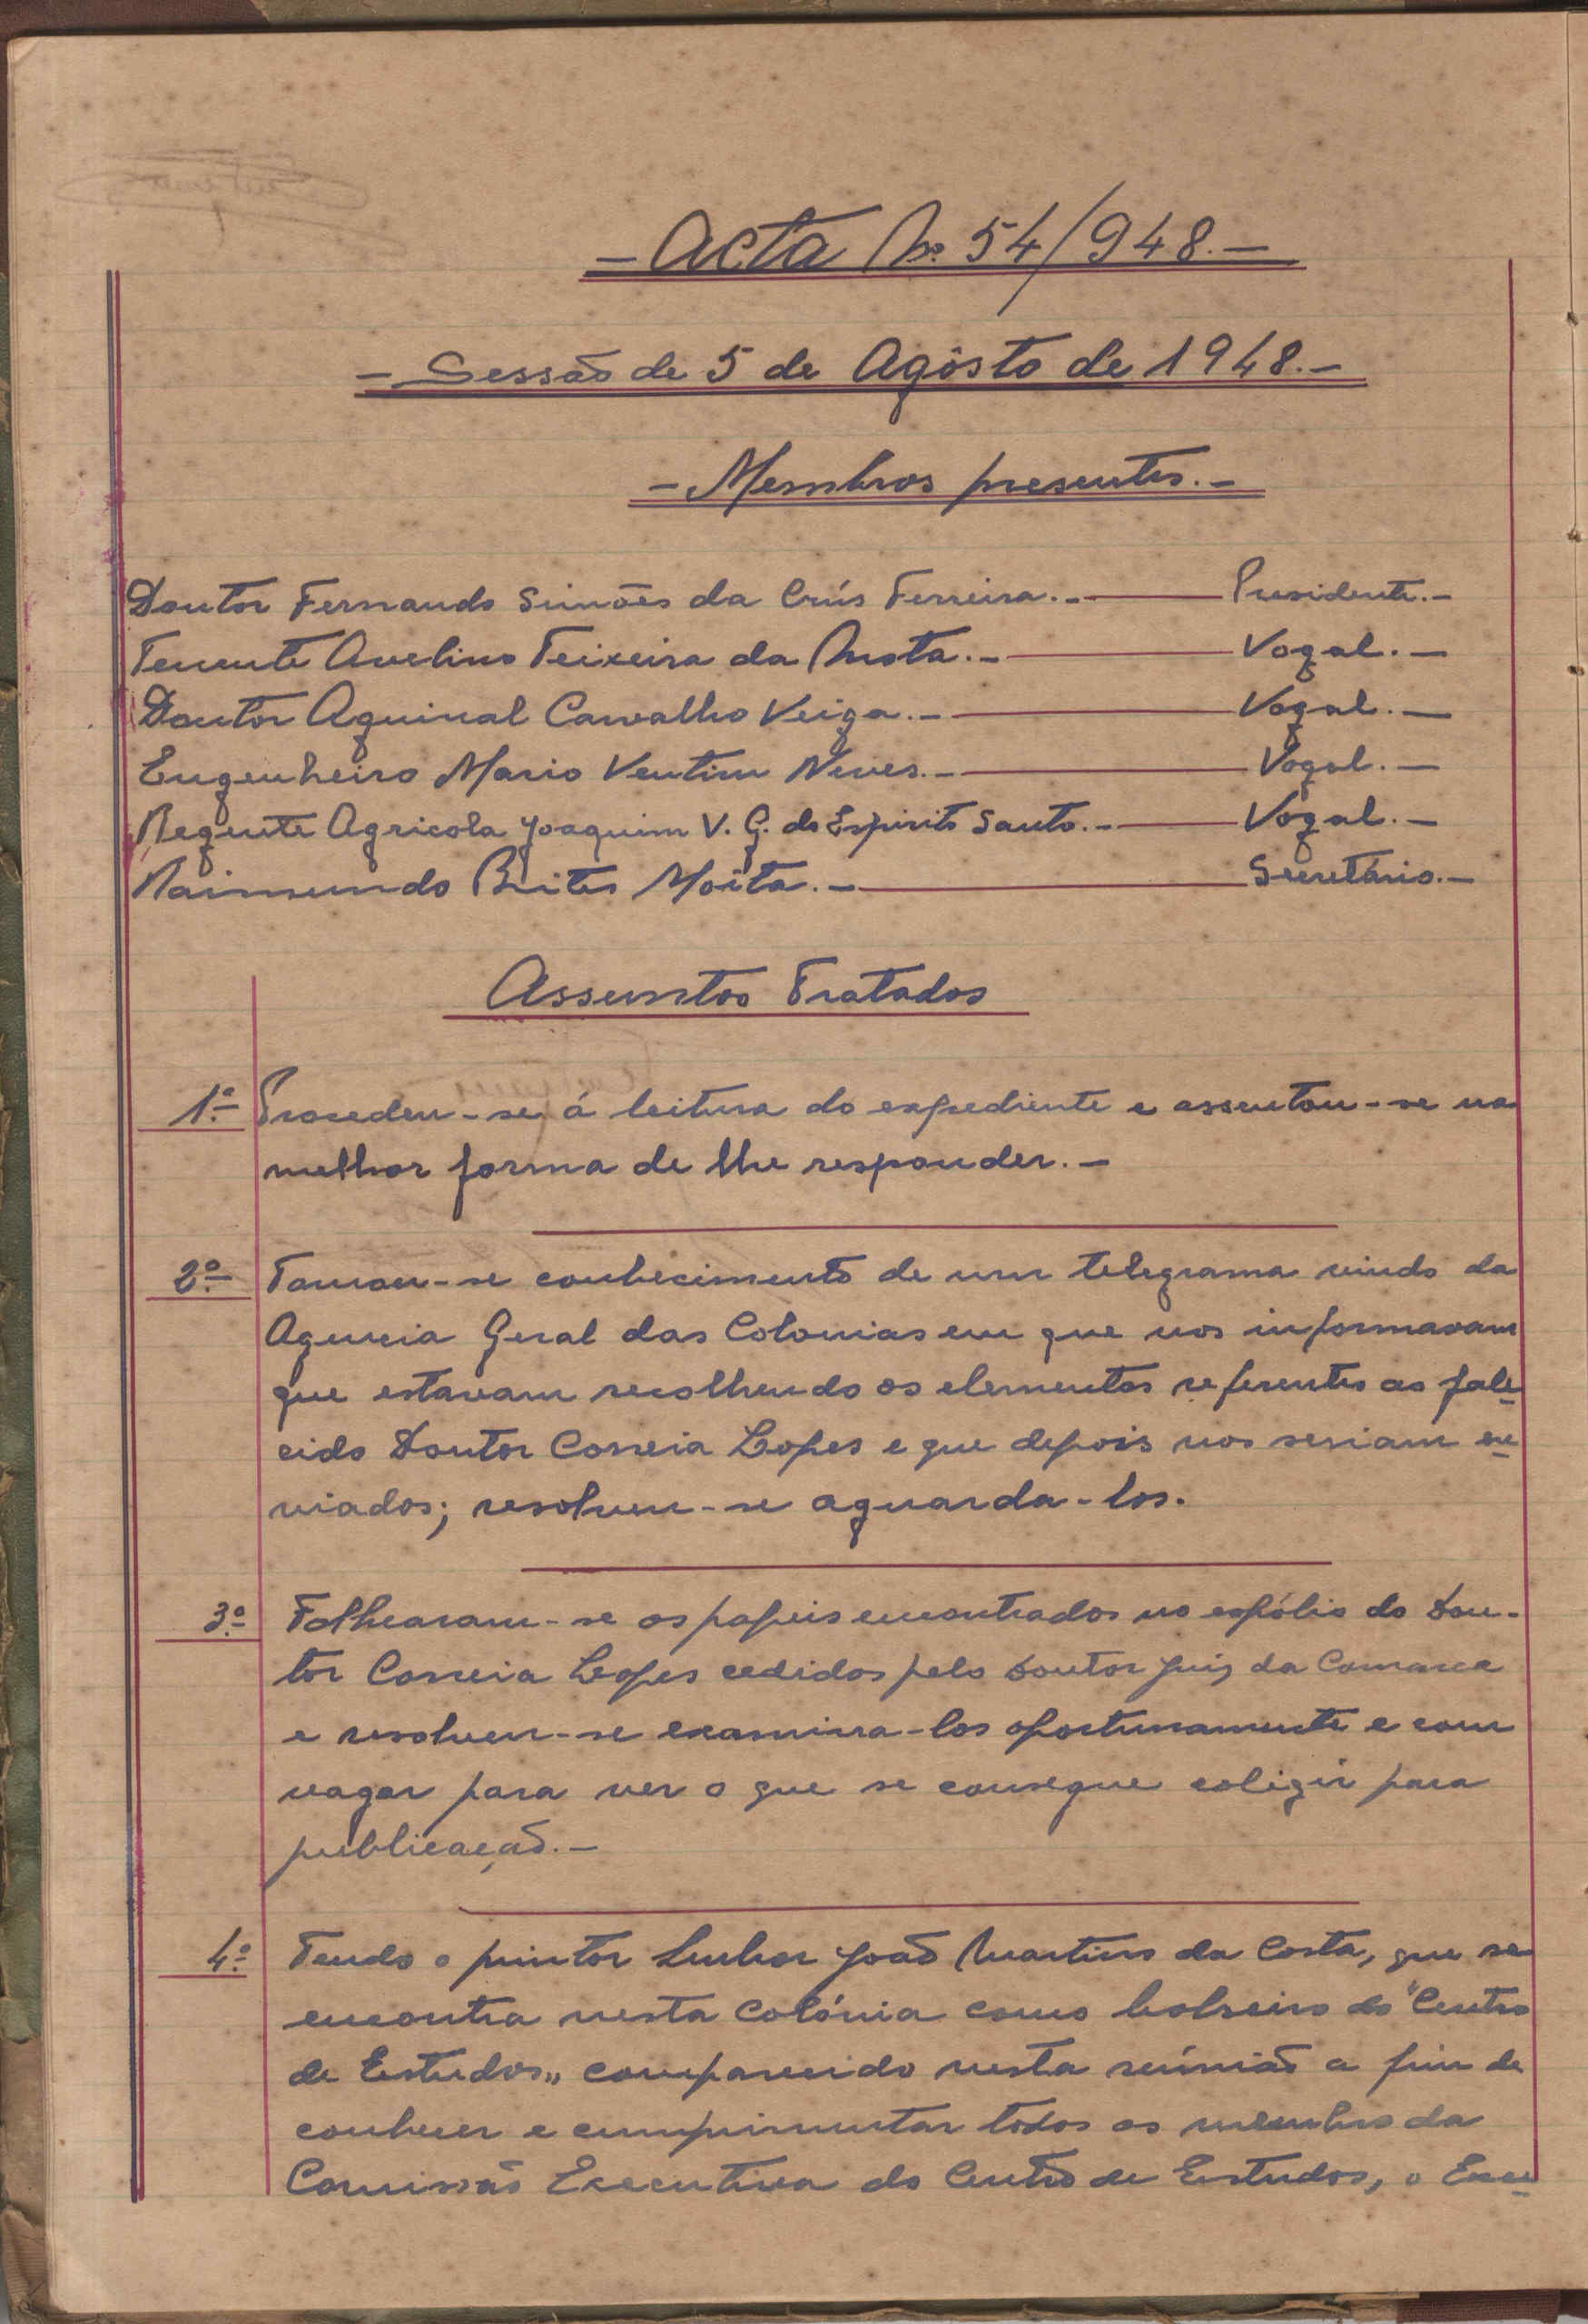 - Acta No. 54/948. -
- Sessão de 5 de Agôsto de 1948. -
- Membros presentes. -
Doutor Fernando Simões da Crús Ferreira. - Presidente. -
Tenente Avelino Teixeira da Mota. - Vogal. -
Doutor Aguinal Carvalho Veiga. - Vogal. -
Engenheiro Mario Ventim Neves. - Vogal. -
Regente Agricola Joaquim V. G. do Espirito Santo. - Vogal. -
Raimundo Brites Moita. - Secretário. -
Assuntos Tratados
1.º Procedeu-se á leitura do expediente e assentou-se na
melhor forma de lhe responder. -
2.º Tomou-se conhecimento de um telegrama vindo da
Agencia Geral das Colonias em que nos informavam
que estavam recolhendo os elementos referentes ao fale-
cido Doutor Correia Lopes e que depois nos seriam en-
viados; resolveu-se aguarda-los.
3.º Folhearam-se os papeis encontrados no espólio do Dou-
tor Correia Lopes cedidos pelo Doutor Juiz da Comarca
e resolveu-se examina-los oportunamente e com
vagar para ver o que se consegue coligir para
publicação. -
4.º Tendo o pintor Senhor João Martins da Costa, que se
encontra nesta Colónia como bolseiro do "Centro
de Estudos„ comparecido nesta reúnião a fim de
conhecer e cumprimentar todos os membro da
Comissão Executiva do Centro de Estudos, o Exce-